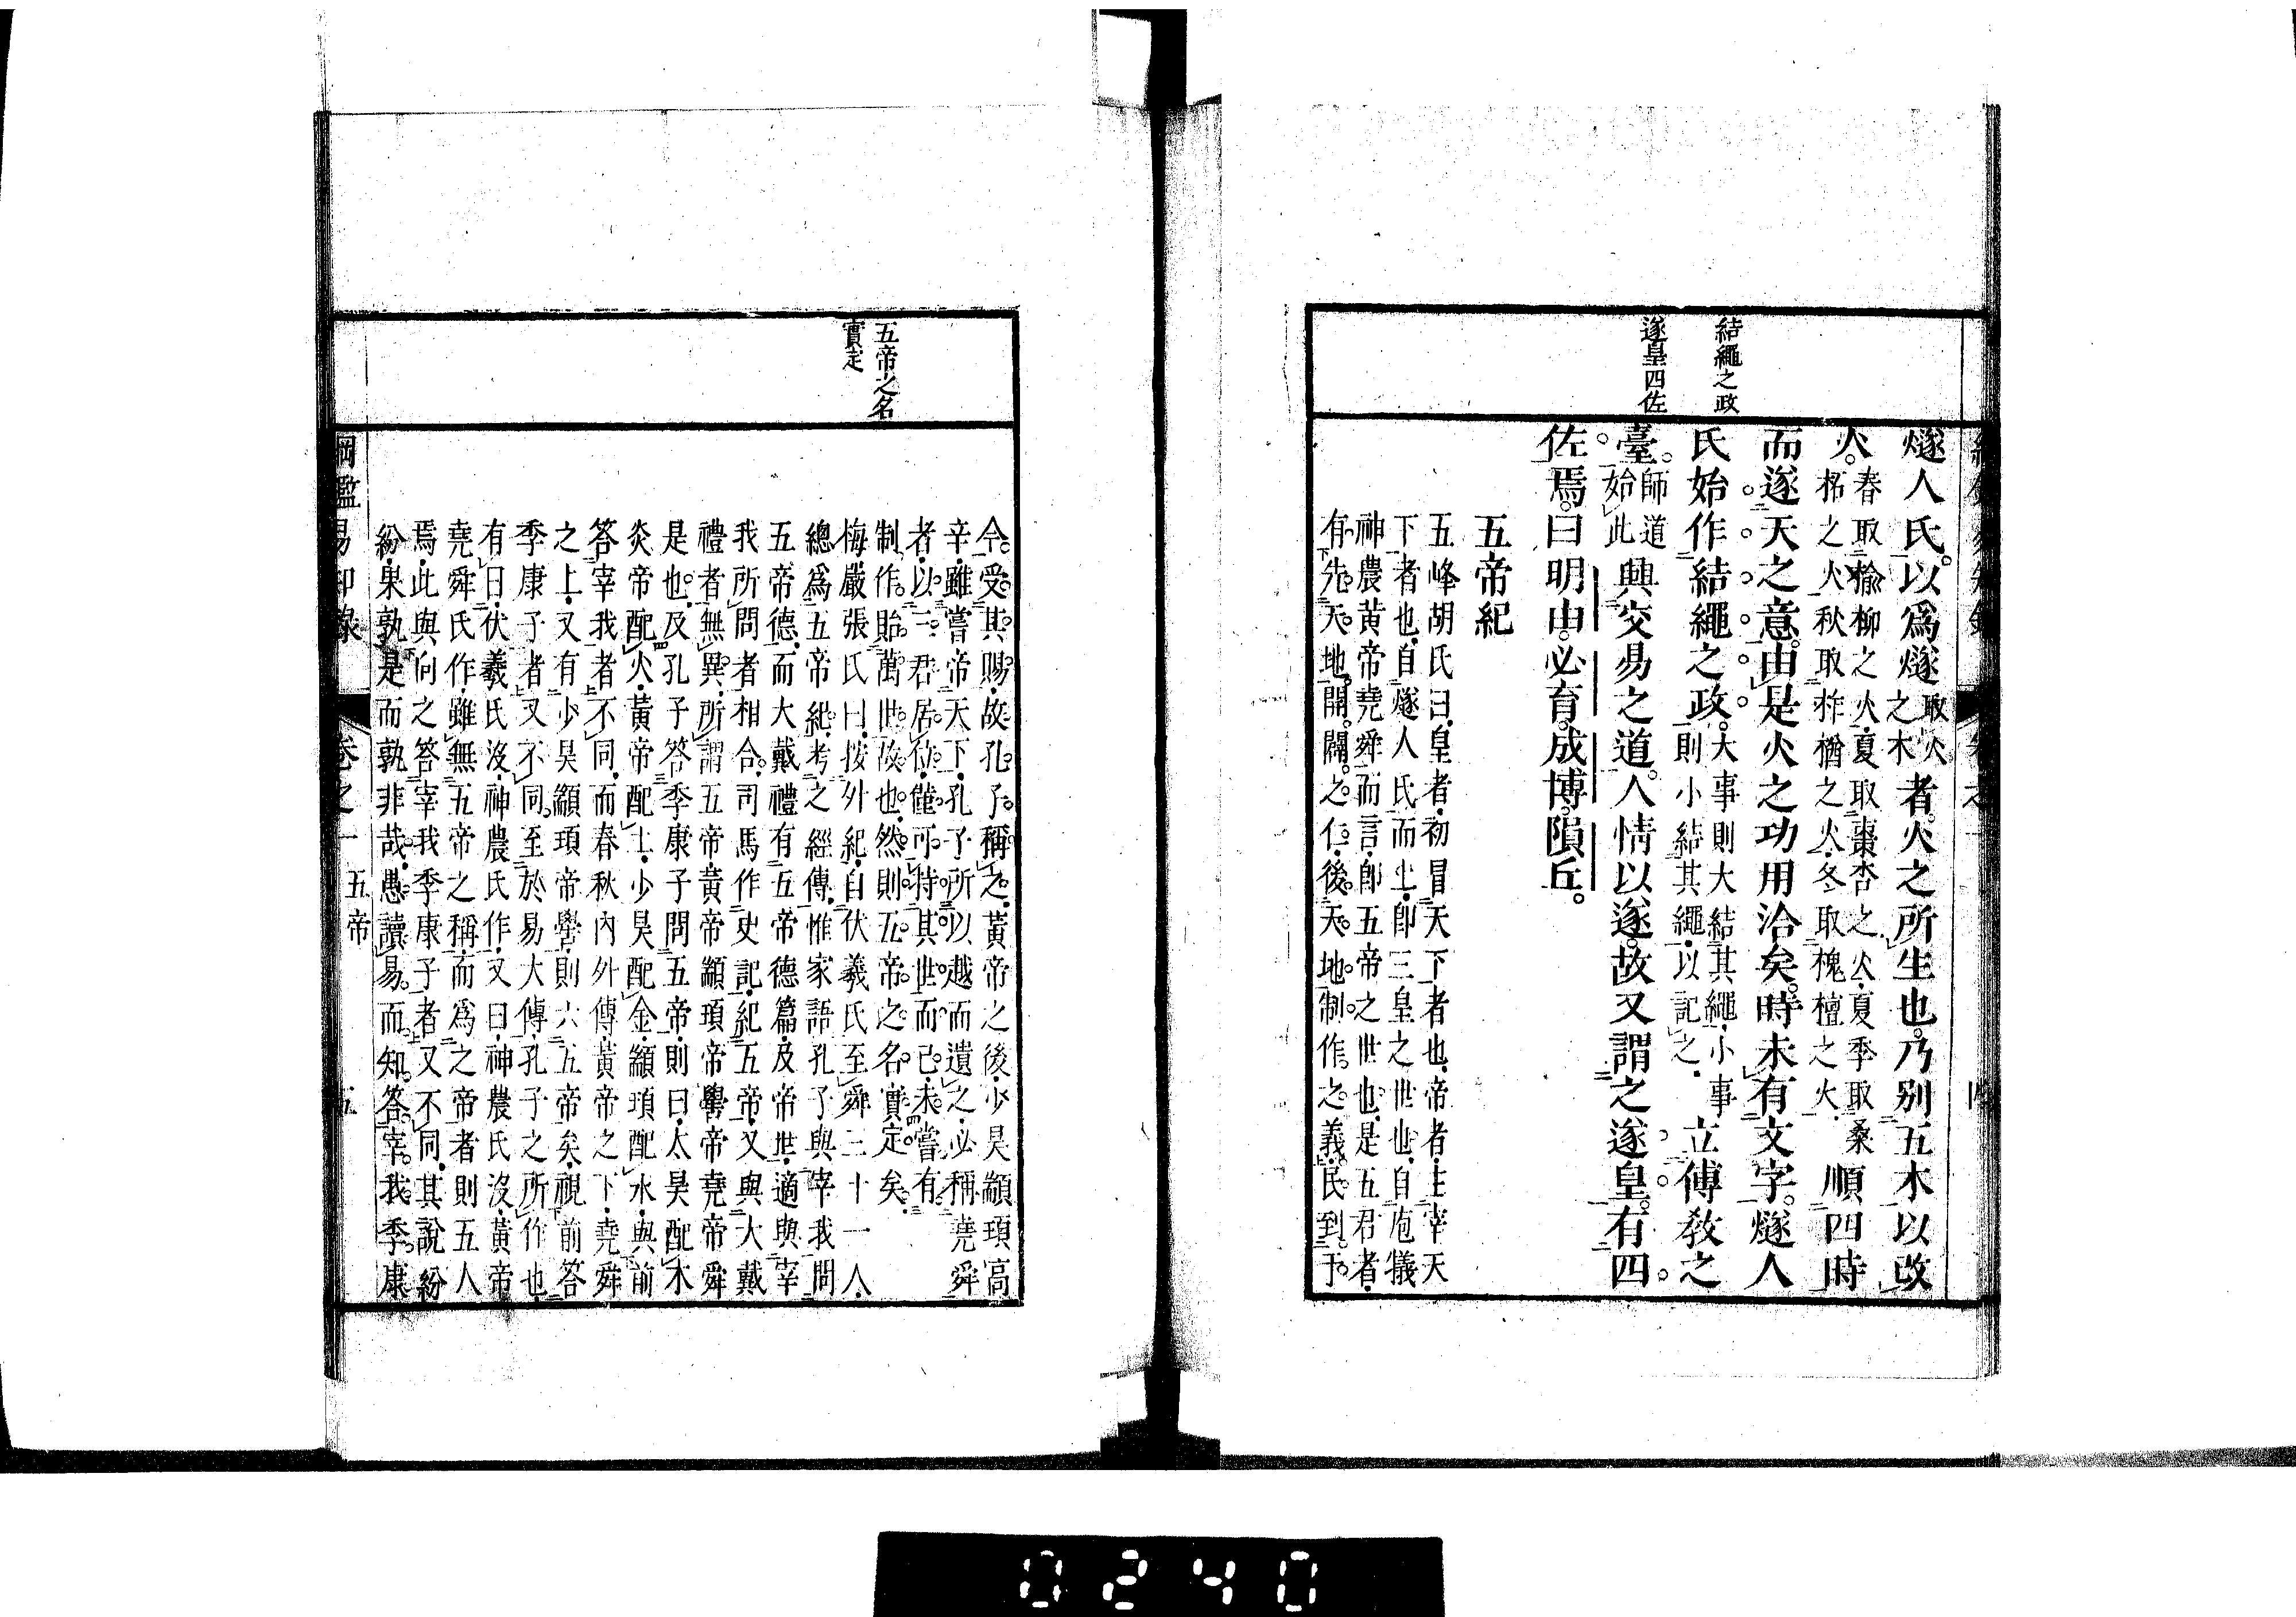 結繩之政
遂皇四佐
燧人氏。以爲燧取火之木者。火之所生也。乃別五木以改
火。春取楡柳之火。夏取棗杏之火。夏季取桑
柘之火。秋取柞楢之火。冬取槐檀之火。順四時
而遂天之意。由是火之功用洽矣。時未有文字。燧人
氏始作結繩之政。大事則大結其繩。小事
則小結其繩。以記之。立傅敎之
臺。師道
始此興交易之道。人情以遂。故又謂之遂皇。有四
佐焉。曰明由。必育。成博。隕丘。
五帝紀
五峰胡氏曰。皇者。初冒天下者也。帝者。主宰天
下者也。自燧人氏而上。卽三皇之世也。自庖犠
神農黃帝堯舜而言。卽五帝之世也。是五君者。
有先天地開闢之仁。後天地制作之義。民到于
五帝之名
實定
今受其賜。故孔子稱之。黃帝之後。少昊顓頊高
辛。雖嘗帝天下。孔子所以越而遺之。必稱堯舜
者。以三君居位。僅可持其世而已。未嘗有
制作。貽萬世故也。然則五帝之名實定矣。
梅巖張氏曰。按外紀。自伏羲氏至舜三十一人。
總爲五帝紀。考之經傳。惟家語孔子與宰我問
五帝德。而大戴禮有五帝德篇。及帝世。適與宰
我所問者相合。司馬作史記。紀五帝。又與大戴
禮者無異。所謂五帝。黃帝顓頊帝嚳帝堯帝舜
是也。及孔子答季康子問五帝。則曰。太昊配木
炎帝配火。黃帝配土。少昊配金。顓頊配水。與前
答宰我者不同。而春秋內外傳。黃帝之下。堯舜
之上。又有少昊顓頊帝嚳。則六五帝矣。視前答
季康子者又不同。至於易大傳。孔子之所作也。
有曰。伏羲氏沒。神農氏作。又曰。神農氏沒。黃帝
堯舜氏作。雖無五帝之稱。而爲之帝者則五人
焉。此與向之答宰我季康子者又不同。其說紛
紛。果孰是而孰非哉。愚讀易。而知答宰我季康
綱鑑易知錄 卷之一 五帝 五
0240